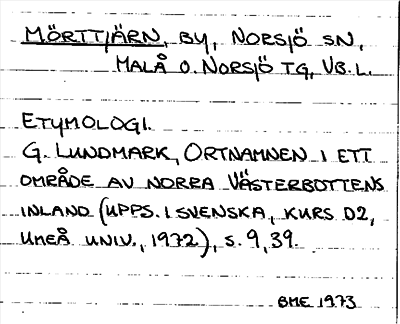 MÖRTTJÄRN, BY, NORSJÖ SN,
MALÅ O. NORSJÖ TG, VB. L.
ETYMOLOGI.
G. LUNDMARK, ORTNAMNEN I ETT
OMRÅDE AV NORRA VÄSTERBOTTENS
INLAND (UPPS. I SVENSKA, KURS D2,
UMEÅ UNIV., 1972), S. 9, 39.
BME 1973